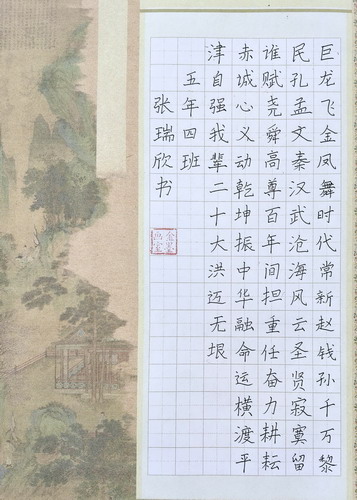 巨龙飞金凤舞时代常新赵钱孙千万黎
民孔孟文秦汉武沧海风云圣贤寂寞留
谁赋尧舜高尊百年间担重任奋力耕耘
赤城心义动乾坤振中华融命运横渡平
津自强我辈二十大洪迈无垠
五年四班
张瑞欣书